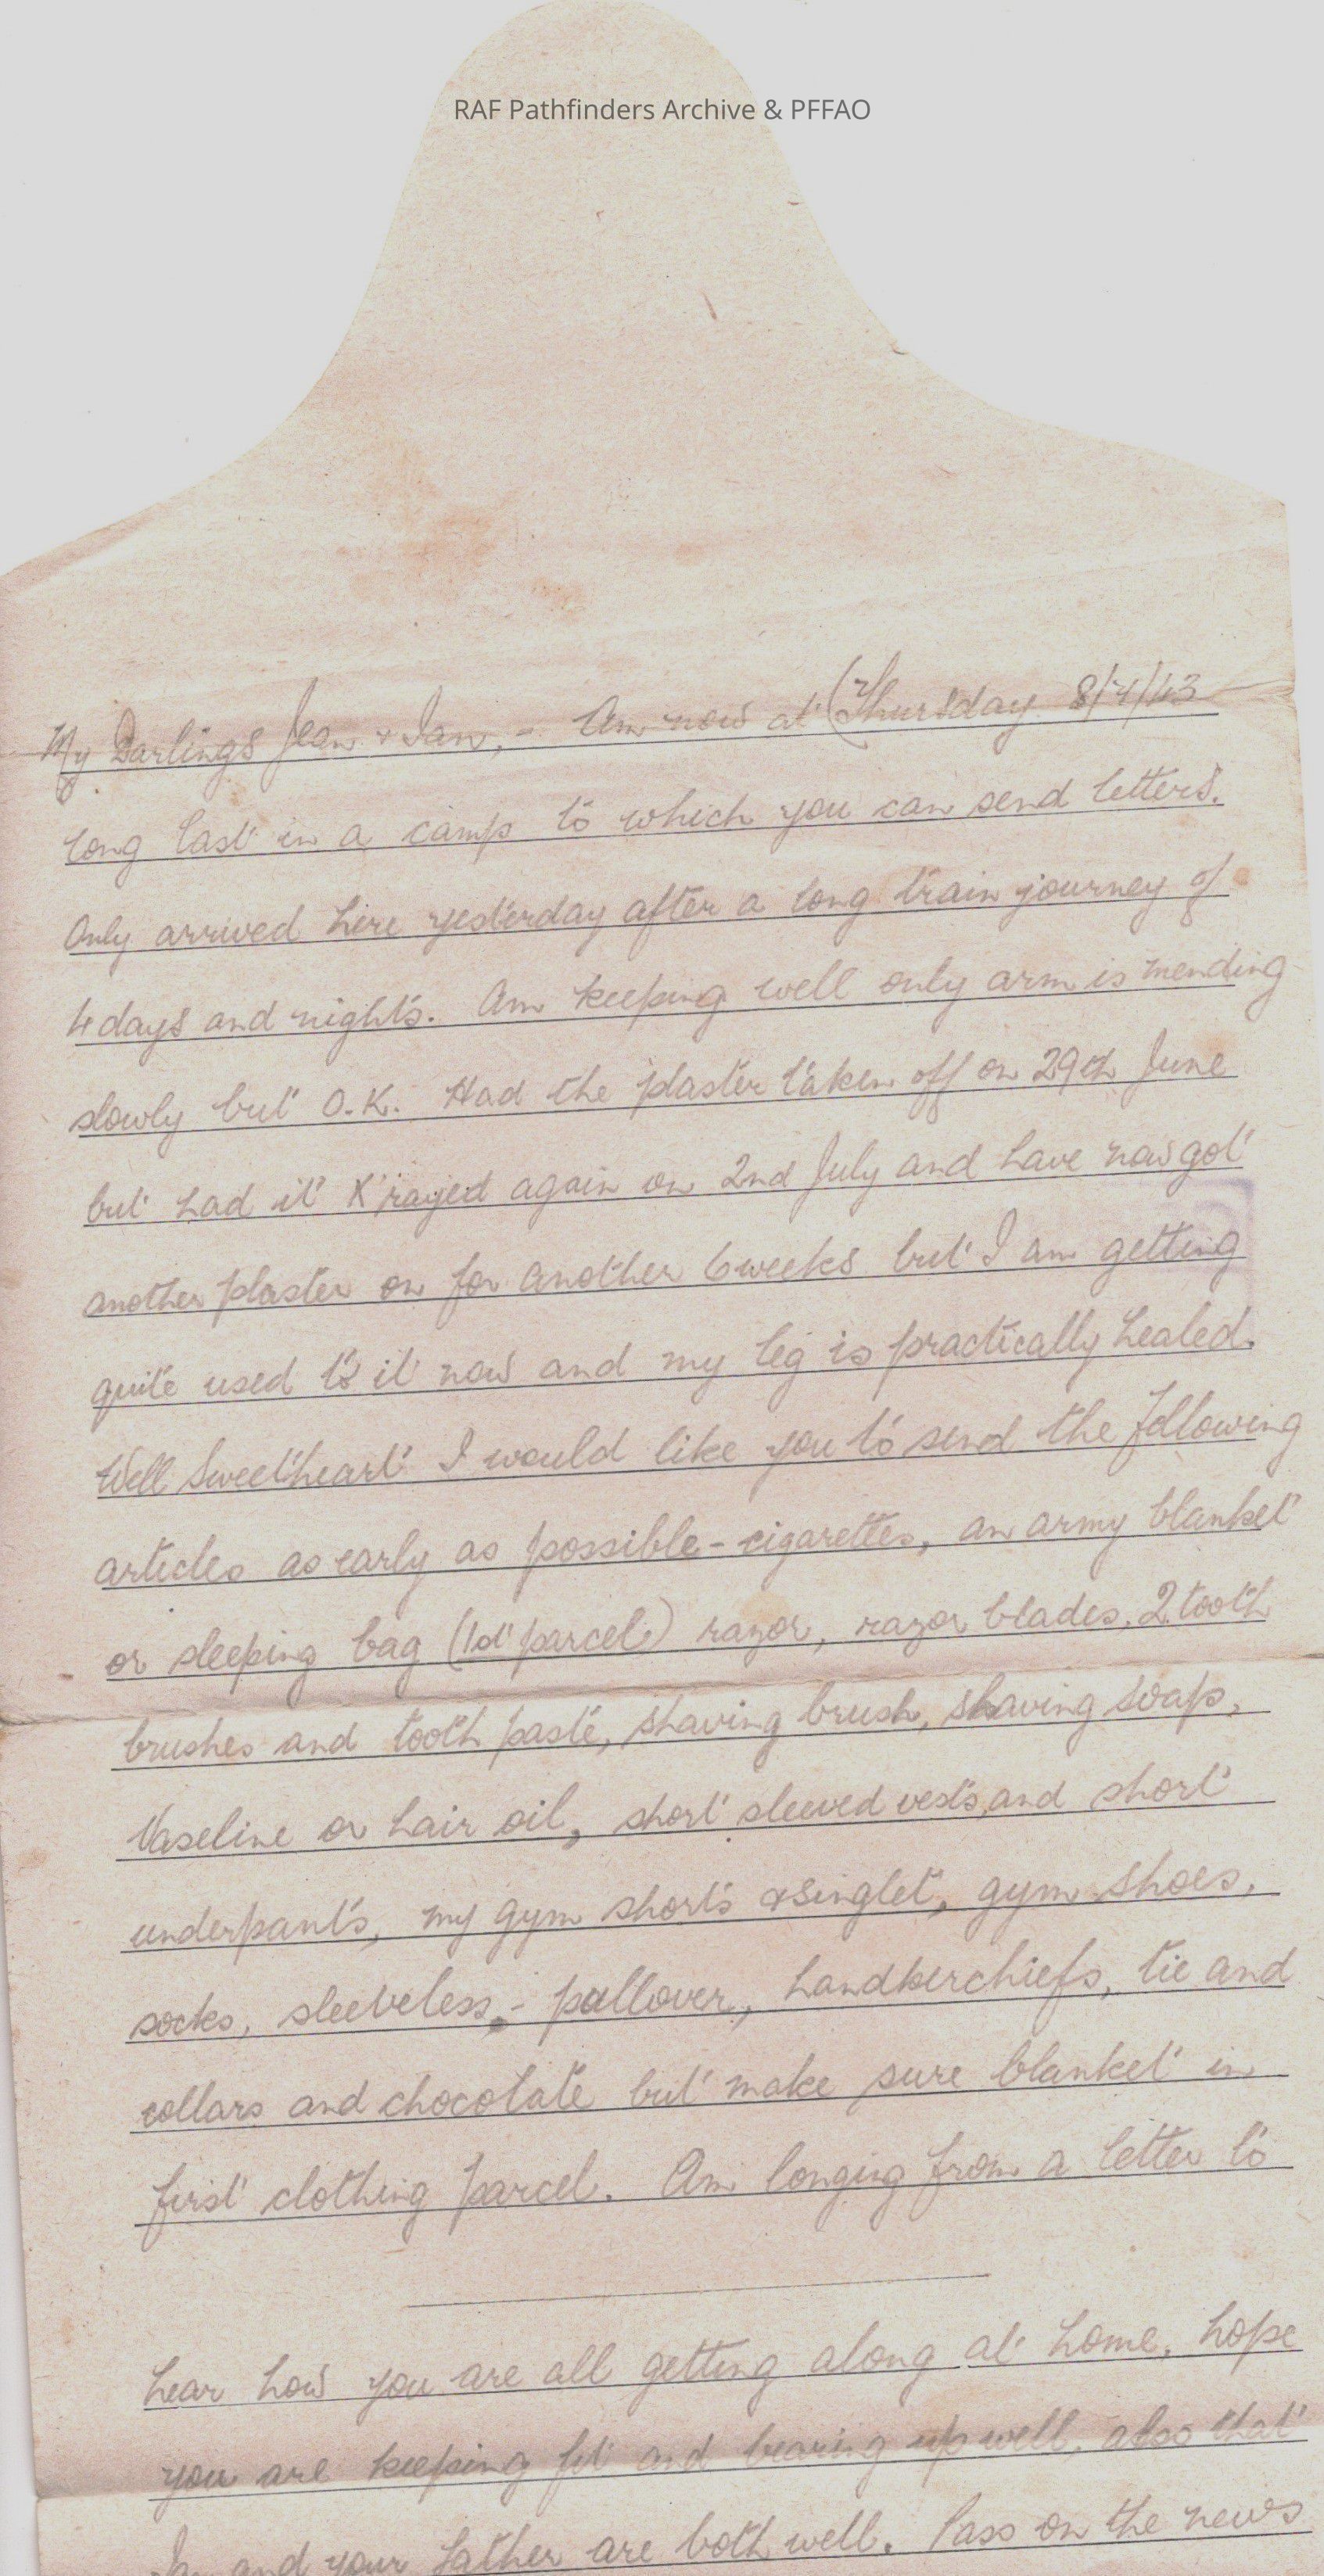 RAF Pathfinders Archive & PFFAO
My Darlings Jean & Ian, - Am now at (Thursday 8/7/43
long last in a camp to which you can send letters.
Only arrived here yesterday after a long train journey of
4 days and nights. Am keeping well only arm is mending
slowly but O.K. Had the plaster taken off on 29th June
but had it X'rayed again on 2nd July and have now got
another plaster on for another 6 weeks but I am getting
quite used to it now and my leg is practically healed.
Well Sweetheart I would like you to send the following
articles as early as possible - cigarettes, an army blanket
or sleeping bag (1st parcel) razor, razor blades, 2 tooth
brushes and tooth paste, shaving brush, shaving soap,
Vaseline or hair oil, short sleeved vests, and short
underpants, my gym shorts & singlet, gym shoes,
socks, sleeveless, - pullover, handkerchiefs, tie and
collars and chocolate but make sure blanket in
first clothing parcel. Am longing from a letter to
hear how you are all getting along at home, hope
you are keeping fit and bearing up well, also that
Ian and your father are both well. Pass on the news